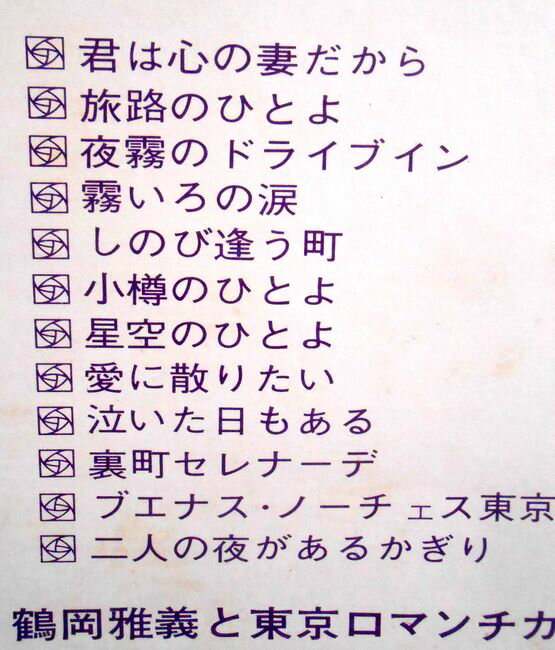 君は心の妻だから
旅路のひとよ
夜霧のドライブイン
霧いろの涙
しのび逢う町
小樽のひとよ
星空のひとよ
愛に散りたい
泣いた日もある
裏町セレナーデ
ブエナス・ノーチェス東京
二人の夜があるかぎり
鶴岡雅義と東京ロマンチカ